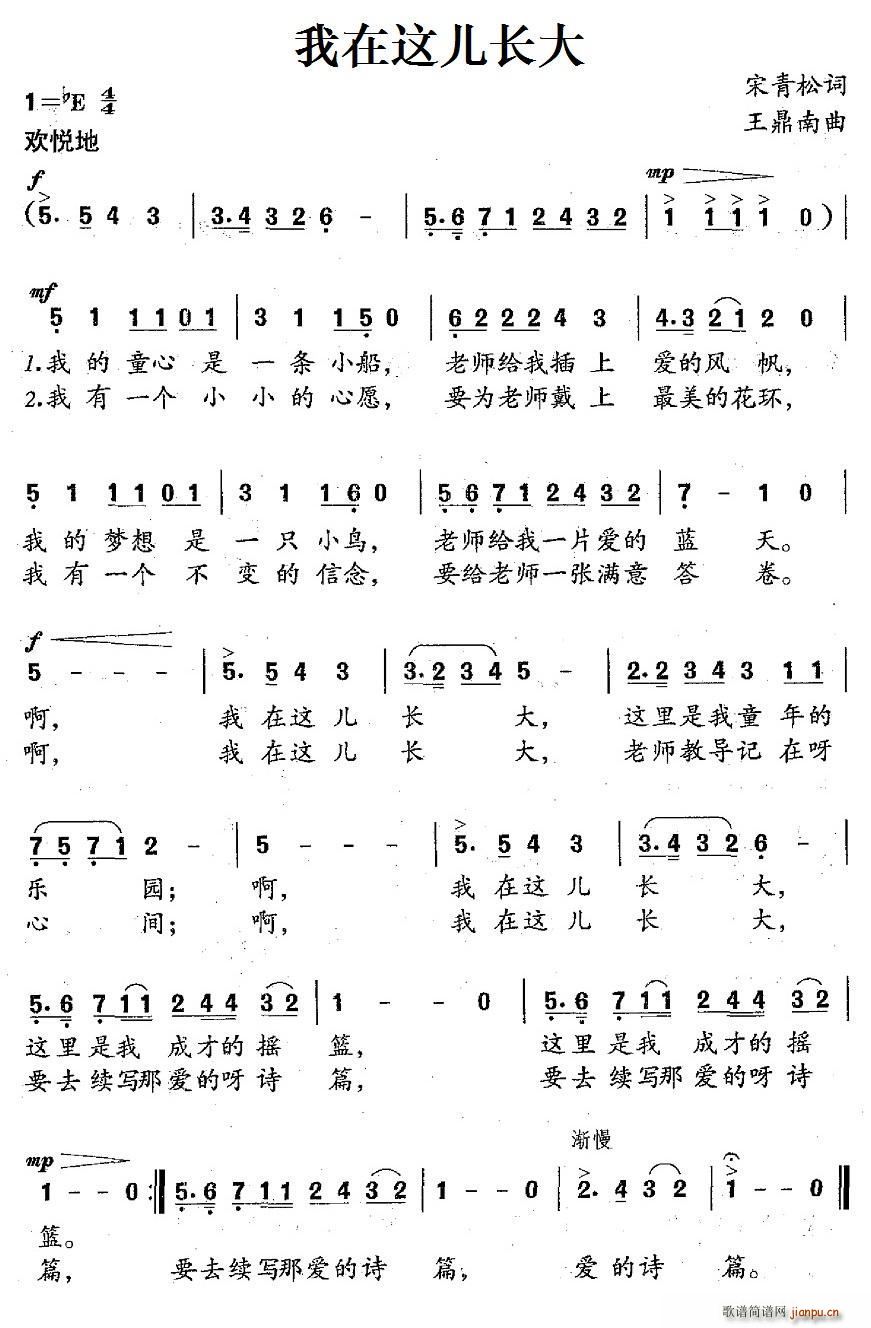 我在这儿长大
宋青松词
1=♭E 4/4
王鼎南曲
欢悦地
f mp
(5. 5 4 3 | 3.4 3 2 6 - | 5.6 7 1 2 4 3 2 | 1 1 1 1 0 )|
mf
5 1 1 1 0 1 | 3 1 1 5 0 | 6 2 2 2 4 3 | 4.3 2 1 2 0 |
1.我 的 童心 是 一 条 小船, 老师给我插 上 爱的风 帆,
2.我 有 一个 小 小 的 心愿, 要为老师戴 上 最美的花环,
5 1 1 1 0 1 | 3 1 1 6 0 | 5 6 7 1 2 4 3 2 | 7 - 1 0 |
我 的 梦想 是 一 只 小鸟, 老师给我一片爱的 蓝 天。
我 有 一个 不 变 的 信念, 要给老师一张满意 答 卷。
f
5 - - - | 5. 5 4 3 | 3.2 3 4 5 - | 2.2 3 4 3 1 1 |
啊, 我 在这 儿 长 大, 这里是我童 年的
啊, 我 在这 儿 长 大, 老师教导记 在呀
7 5 7 1 2 - | 5 - - - | 5. 5 4 3 | 3.4 3 2 6 - |
乐 园; 啊, 我 在这 儿 长 大,
心 间; 啊, 我 在这 儿 长 大,
5.6 7 1 1 2 4 4 3 2 | 1 - - 0 | 5.6 7 1 1 2 4 4 3 2 |
这里是我 成才的摇 篮, 这里是我 成才的摇
要去续写那爱的呀诗 篇, 要去续写那爱的呀诗
渐慢
mp
1 - - 0 :‖ 5.6 7 1 1 2 4 3 2 | 1 - - 0 | 2. 4 3 2 | 1 - - 0 ‖
篮。
篇, 要去续写那爱的诗 篇, 爱的诗 篇。
歌谱简谱网 jianpu.cn